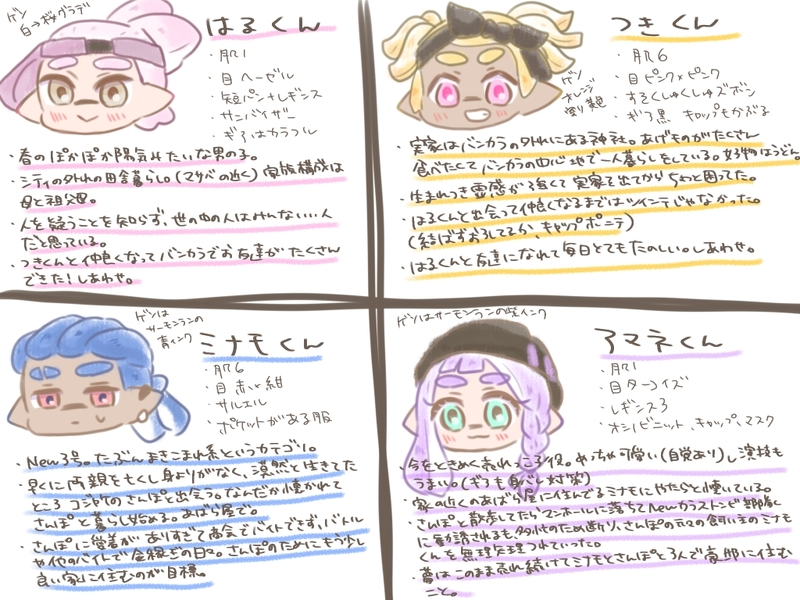 はるくん
ゲソ
白→桜グラデ
・肌1
・目 ヘーゼル
・短パン+レギンス
・サンバイザー
・ギアはカラフル
・春のぽかぽか陽気みたいな男の子。
・シティの外れの田舎暮らし。(マサバの近く)家族構成は
母と祖父母。
・人を疑うことを知らず、世の中の人はみんないい人
だと思っている。
・つきくんと仲良くなってバンカラでお友達がたくさん
できた!しあわせ。
つきくん
ゲソ
オレンジ
寄り黄色
・肌6
・目ピンク×ピンク
・すそくしゅくしゅズボン
・ギア黒 キャップもかぶる
・実家はバンカラの外れにある神社。あげものがたくさん
食べたくてバンカラの中心地で一人暮らしをしている。好物はうどん。
・生まれつき霊感が強くて実家を出てからちょっと困ってた。
・はるくんと出会って仲良くなるまではツインテじゃなかった。
(結ばずおろしてるか、キャップポニテ)
・はるくんと友達になれて毎日とてもたのしい。しあわせ。
ゲソは
サーモンランの
青インク
ミナモくん
・肌6
・目 赤と紺
・サルエル
・ポケットがある服
・New3号。たぶんまきこまれ系というカテゴリ。
・早くに両親を亡くし身よりがなく、漠然と生きてた
ところ コジャケのさんぽと出会う。なんだか懐かれて
さんぽと暮らし始める。あばら屋で。
・さんぽに愛着がありすぎて商会でバイトできず、バトル
や他のバイトで金稼ぎの日々。さんぽのためにもう少し
良い家に住むのが目標。
ゲソはサーモンランの紫インク
アマネくん
・肌1
・目ターコイズ
・レギンス3
・オシノビニット、キャップ、マスク
・今をときめく売れっ子子役。めっちゃ可愛い(自覚あり)し演技も
うまい。(ギアも身バレ対策)
・家の近くのあばら屋に住んでるミナモにやたらと懐いている。
・さんぽと散歩してたらマンホールに落ちてNewカラストンビ部隊
に勧誘されるも、多忙のため断り、さんぽの元々の飼い主のミナモ
くんを無理矢理つれていった。
・夢はこのまま売れ続けてミナモとさんぽと3人で豪邸に住む
こと。